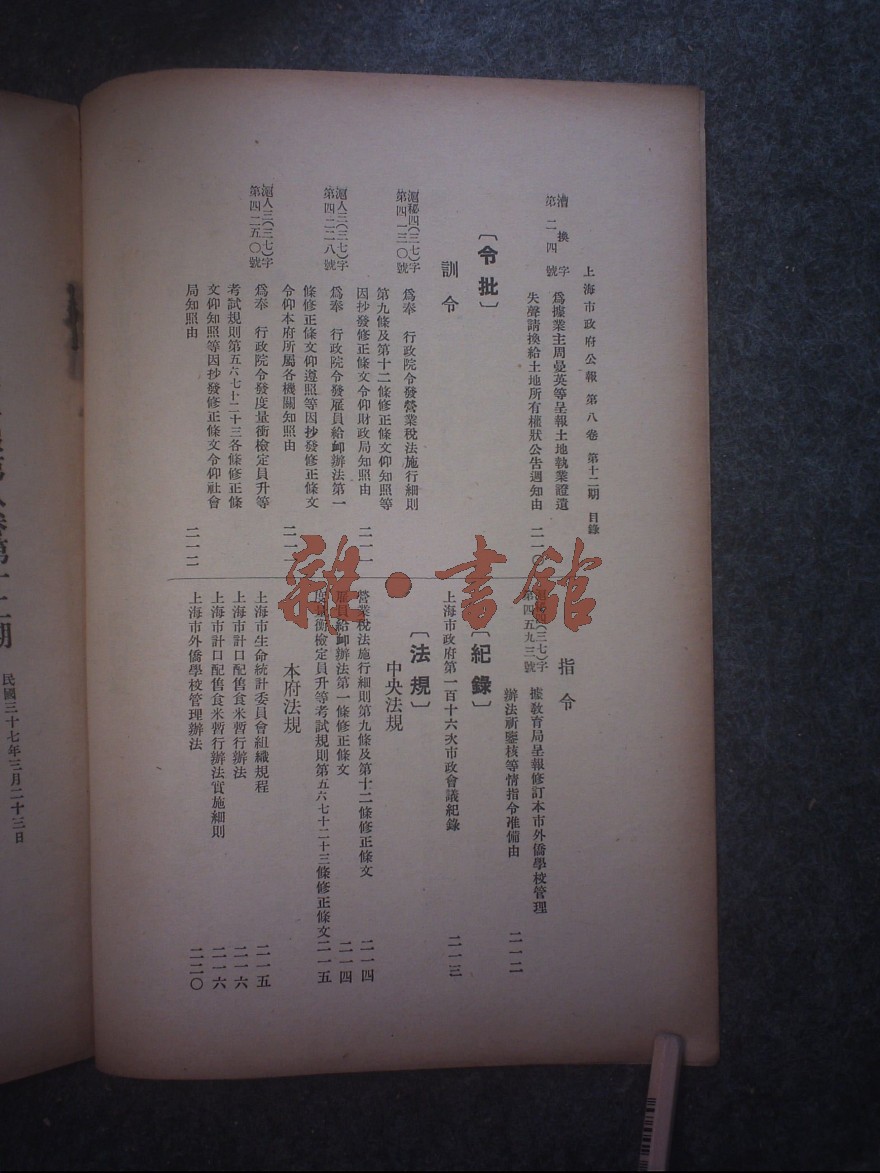 上海市政府公報 第八卷 第十二期 目錄
漕換字
第二四號
為據業主周曼英等呈報土地執業證遺
失聲請換給土地所有權狀公告週知由
二一〇
〔令批〕
訓令
滬秘四(三七)字
第四一三〇號
為奉 行政院令發營業稅法施行細則
第九條及第十二條修正條文仰知照等
因抄發修正條文令仰財政局知照由
二一一
滬人三(三七)字
第四二二八號
為奉 行政院令發雇員給卹辦法第一
條修正條文仰遵照等因抄發修正條文
令仰本府所屬各機關知照由
滬人三(三七)字
第四二五〇號
為奉 行政院令發度量衡檢定員升等
考試規則第五六七十二十三各條修正條
文仰知照等因抄發修正條文令仰社會
局知照由
二一二
指令
(三七)字
第四五九三號
據教育局呈報修訂本市外僑學校管理
辦法祈鑒核等情指令准備由
二一二
〔紀錄〕
上海市政府第一百十六次市政會議紀錄
二一三
〔法規〕
中央法規
營業稅法施行細則第九條及第十二條修正條文
二一四
雇員給卹辦法第一條修正條文
二一四
度量衡檢定員升等考試規則第五六七十二十三條修正條文
二一五
本府法規
上海市生命統計委員會組織規程
二一五
上海市計口配售食米暫行辦法
二一六
上海市計口配售食米暫行辦法實施細則
二一六
上海市外僑學校管理辦法
二二〇
雜·書館
第十二期
民國三十七年三月二十三日